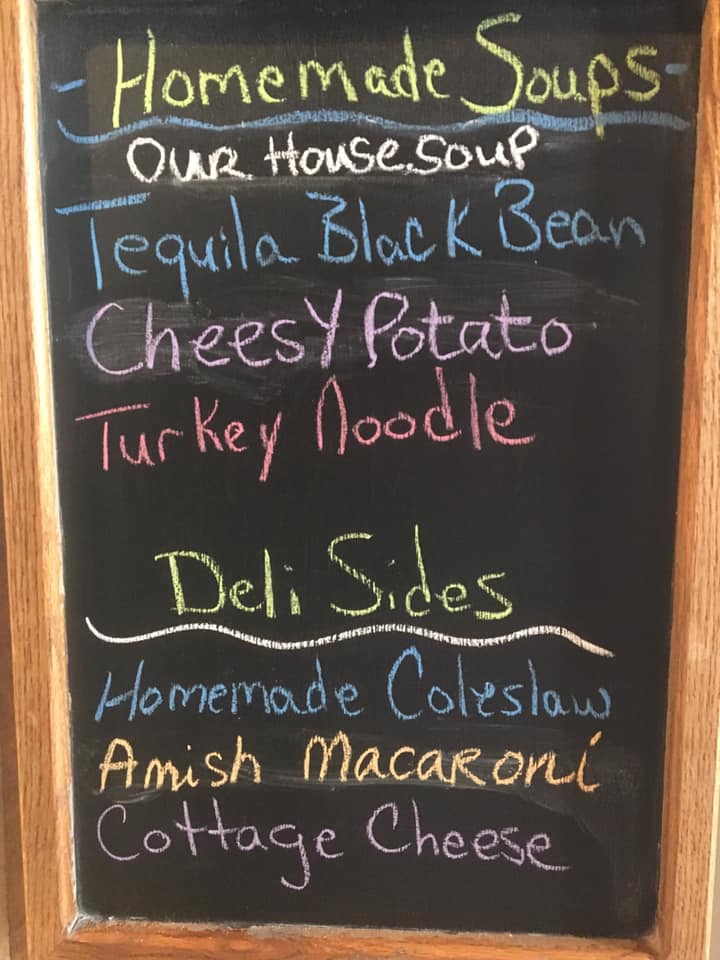 - Homemade Soups -
Our House soup
Tequila Black Bean
Cheesy Potato
Turkey Noodle
Deli Sides
Homemade Coleslaw
Amish Macaroni
Cottage Cheese